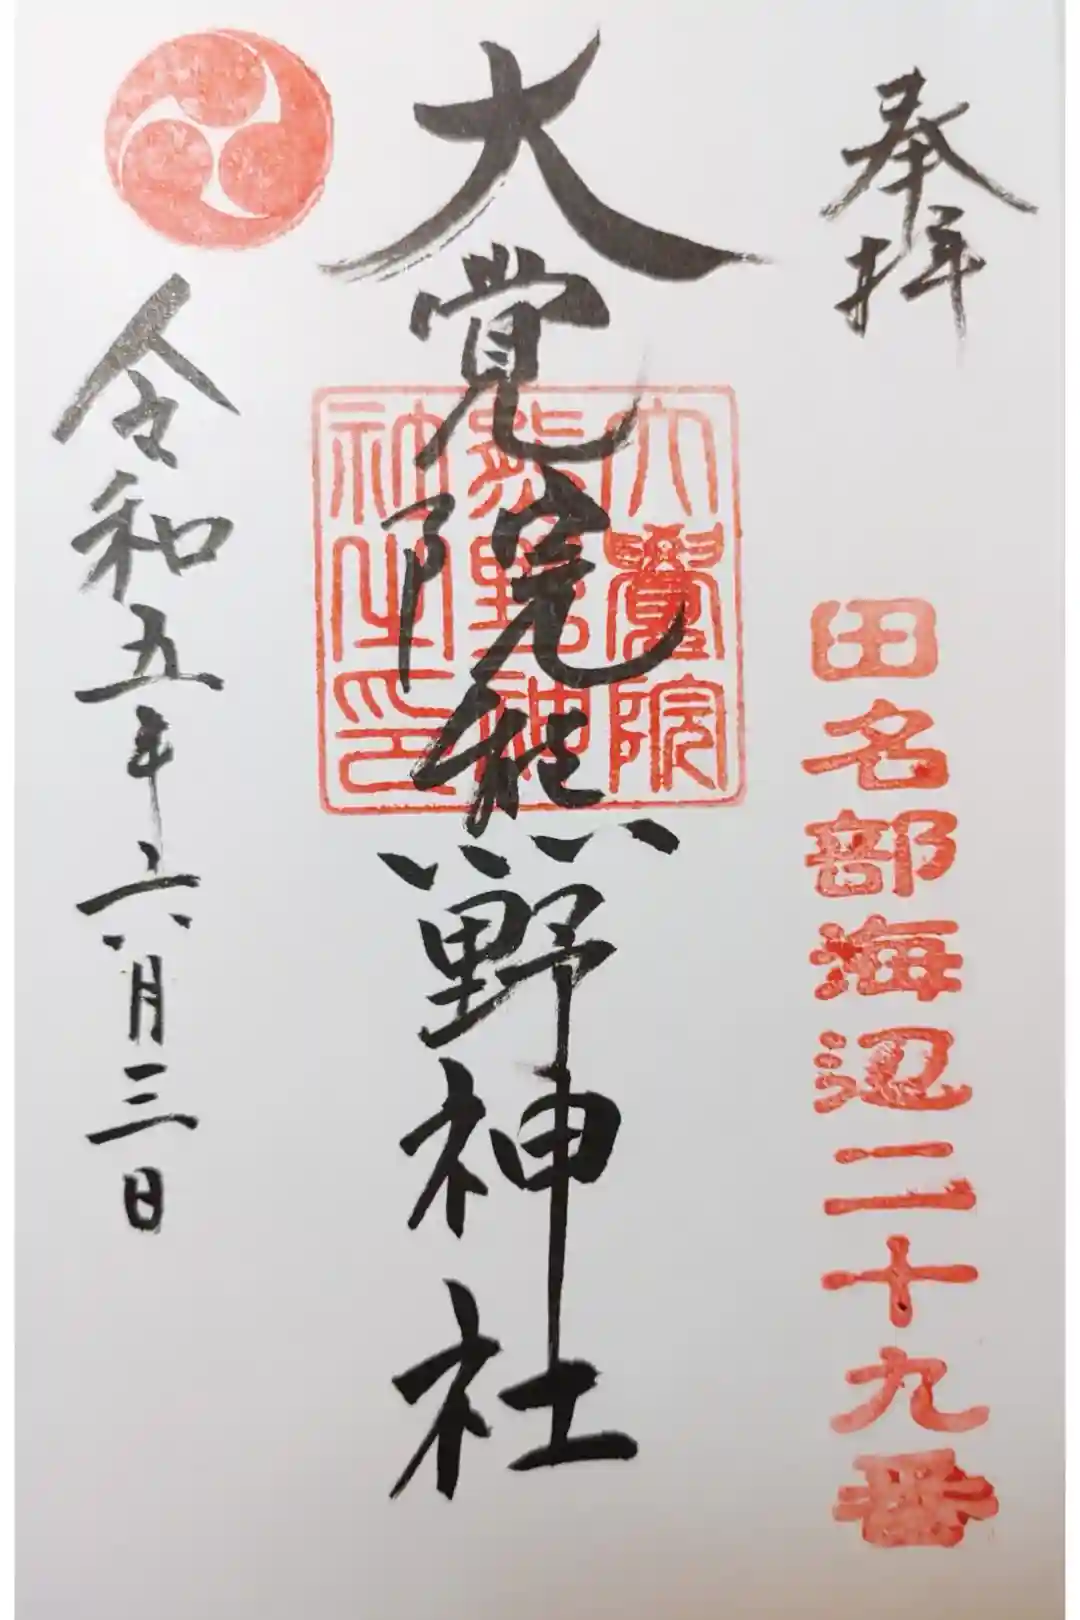 奉拝
田名部海辺二十九番
大覚院熊野神社
大覺院
熊野神
社之印
令和五年六月三日